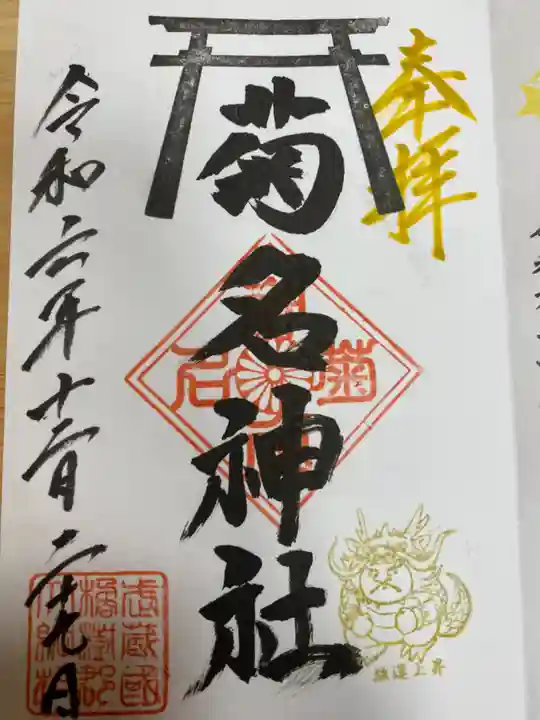 奉拝
菊名神社
菊名
令和六年十二月二十九日
武蔵國
橘樹郡
強運上昇